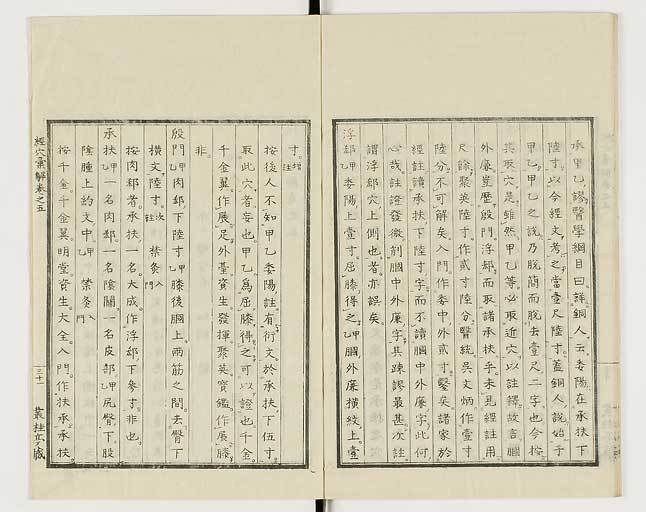 承甲乙謬醫學綱目曰詳銅人云委陽在承扶下
陸寸以今經文考之當壹尺陸寸蓋銅人說始于
甲乙甲乙之說乃脫簡而脫去壹尺二字也今按
其取穴是雖然甲乙等必取近穴以註釋故言膕
外廉豈歷殷門浮郄而取諸承扶乎未見經註用
尺餘聚英陸寸作貳寸陸分醫統吳文炳作壹寸
陸分不可解矣入門作委中外貳寸鑿矣諸家於
經註讀承扶下陸寸字而不讀膕中外廉字此何
心哉註證發微削膕中外廉字其疎謬最甚次註
謂浮郄穴上側也者亦誤矣
浮郄甲乙委陽上壹寸屈膝得之甲乙膕外廉橫紋上壹
寸增註
按後人不知甲乙委陽註有衍文於承扶下伍寸
取此穴者妄也甲乙爲屈膝得之可以證也千金
千金翼作展足外臺資生發揮聚英寶鑑作展膝
非
殷門甲乙肉郄下陸寸甲乙膝後膕上兩筋之間去臀下
橫文陸寸次註禁灸入門
承扶甲乙一名肉郄一名陰關一名皮部甲乙尻臀下股
陰腫上約文中甲乙禁灸入門
按千金千金翼明堂資生大全入門作扶承承扶
按肉郄者承扶一名大成作浮郄下參寸非也
經穴彙解卷之五
三十一
叢桂亭藏